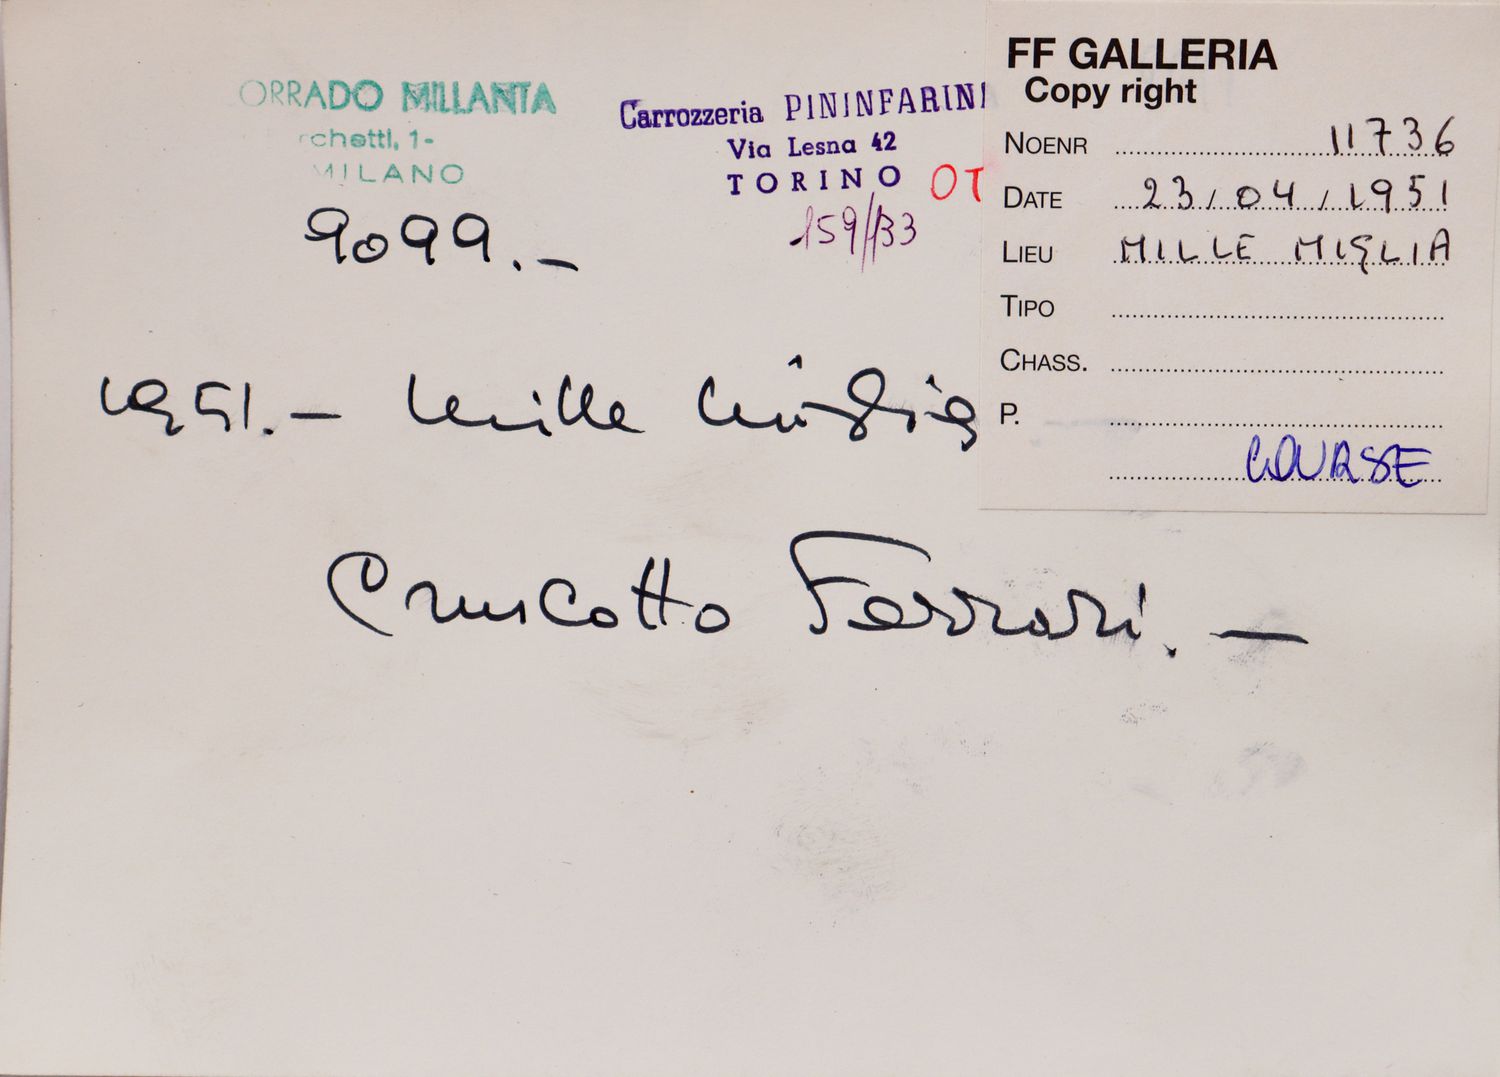 ORRADO MILLANTA
chetti, 1-
MILANO
9099.-
Carrozzeria PININFARINI
Via Lesna 42
TORINO
OT
159/133
1951.- Mille Miglia
Cruscotto Ferrari.-
FF GALLERIA
Copy right
NOENR 11736
DATE 23/04/1951
LIEU MILLE MIGLIA
TIPO
CHASS.
P.
COURSE